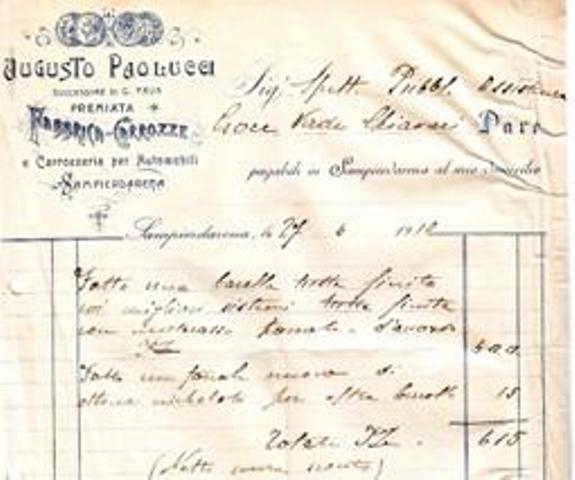 AUGUSTO PAOLUCCI
SUCCESSORE DI G.
PREMIATA
FABBRICA-CARROZZE
e Carrozzeria per Automobili
SAMPIERDARENA
Sigr Spett. Pubbl. Assistenza
Croce Verde Chiavari Dare
pagabili in Sampierdarena al mio domicilio
Sampierdarena, li 27 6 1910
Fatto una barella finita
migliori sistemi finita
con materasso
600
Fatto un fanale nuovo di
ottone nichelato per altra barella 15
Totale 615
(Netto senza sconto)